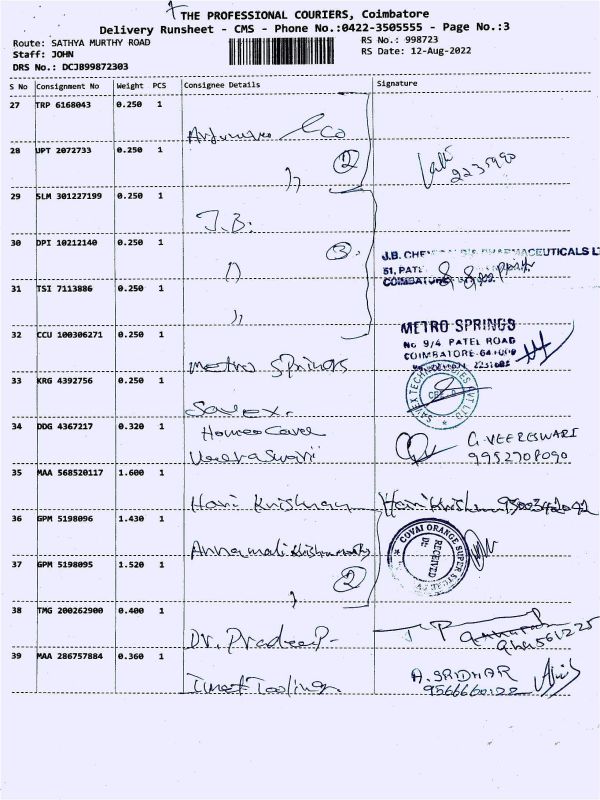 THE PROFESSIONAL COURIERS, Coimbatore
Delivery Runsheet - CMS - Phone No.:0422-3505555 - Page No.:3
Route: SATHYA MURTHY ROAD
RS No.: 998723
Staff: JOHN
RS Date: 12-Aug-2022
DRS No.: DCJB99872303
S No Consignment No Weight PCS Consignee Details Signature
27 TRP 6168043 0.250 1
Co
28 UPT 2072733 0.250 1
2
2235990
29 SLM 301227199 0.250 1
J.B.
30 DPI 10212140 0.250 1
3
J.B. PHARMACEUTICALS LT
51, PATE
31 TSI 7113886 0.250 1
METRO SPRINGS
No 9/4 PATEL ROAD
32 CCU 100306271 0.250 1
COIMBATORE-641009
Metro Springs
33 KRG 4392756 0.250 1
SAVEX TECHNOLOGIES PVT LTD
Savex.
34 DDG 4367217 0.320 1
HomeoCare
G. VEERESWARI
Veeraswari
9952708090
35 MAA 568520117 1.600 1
Hari Krishnan
Hari Krishnan 9500342042
36 GPM 5198096 1.430 1
COVAI ORANGE SUPER
RECEIVED
Annamali Krishnamurthy
37 GPM 5198095 1.520 1
2
38 TMG 200262900 0.400 1
Dr. Pradeep
39 MAA 286757884 0.360 1
A. SRIDHAR
9566660122